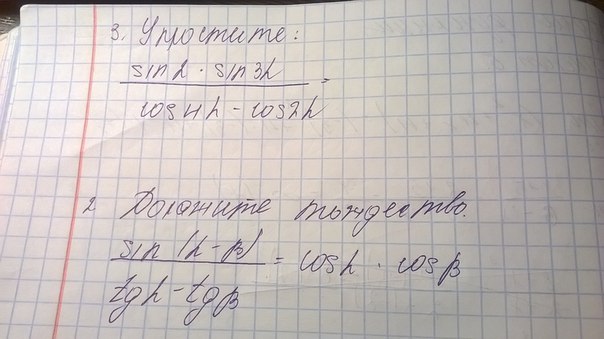 3. Упростите:
sinα · sin3α
=
cos4α - cos2α
2 Докажите тождество.
sin(α-β)
= cosα · cosβ
tgα - tgβ